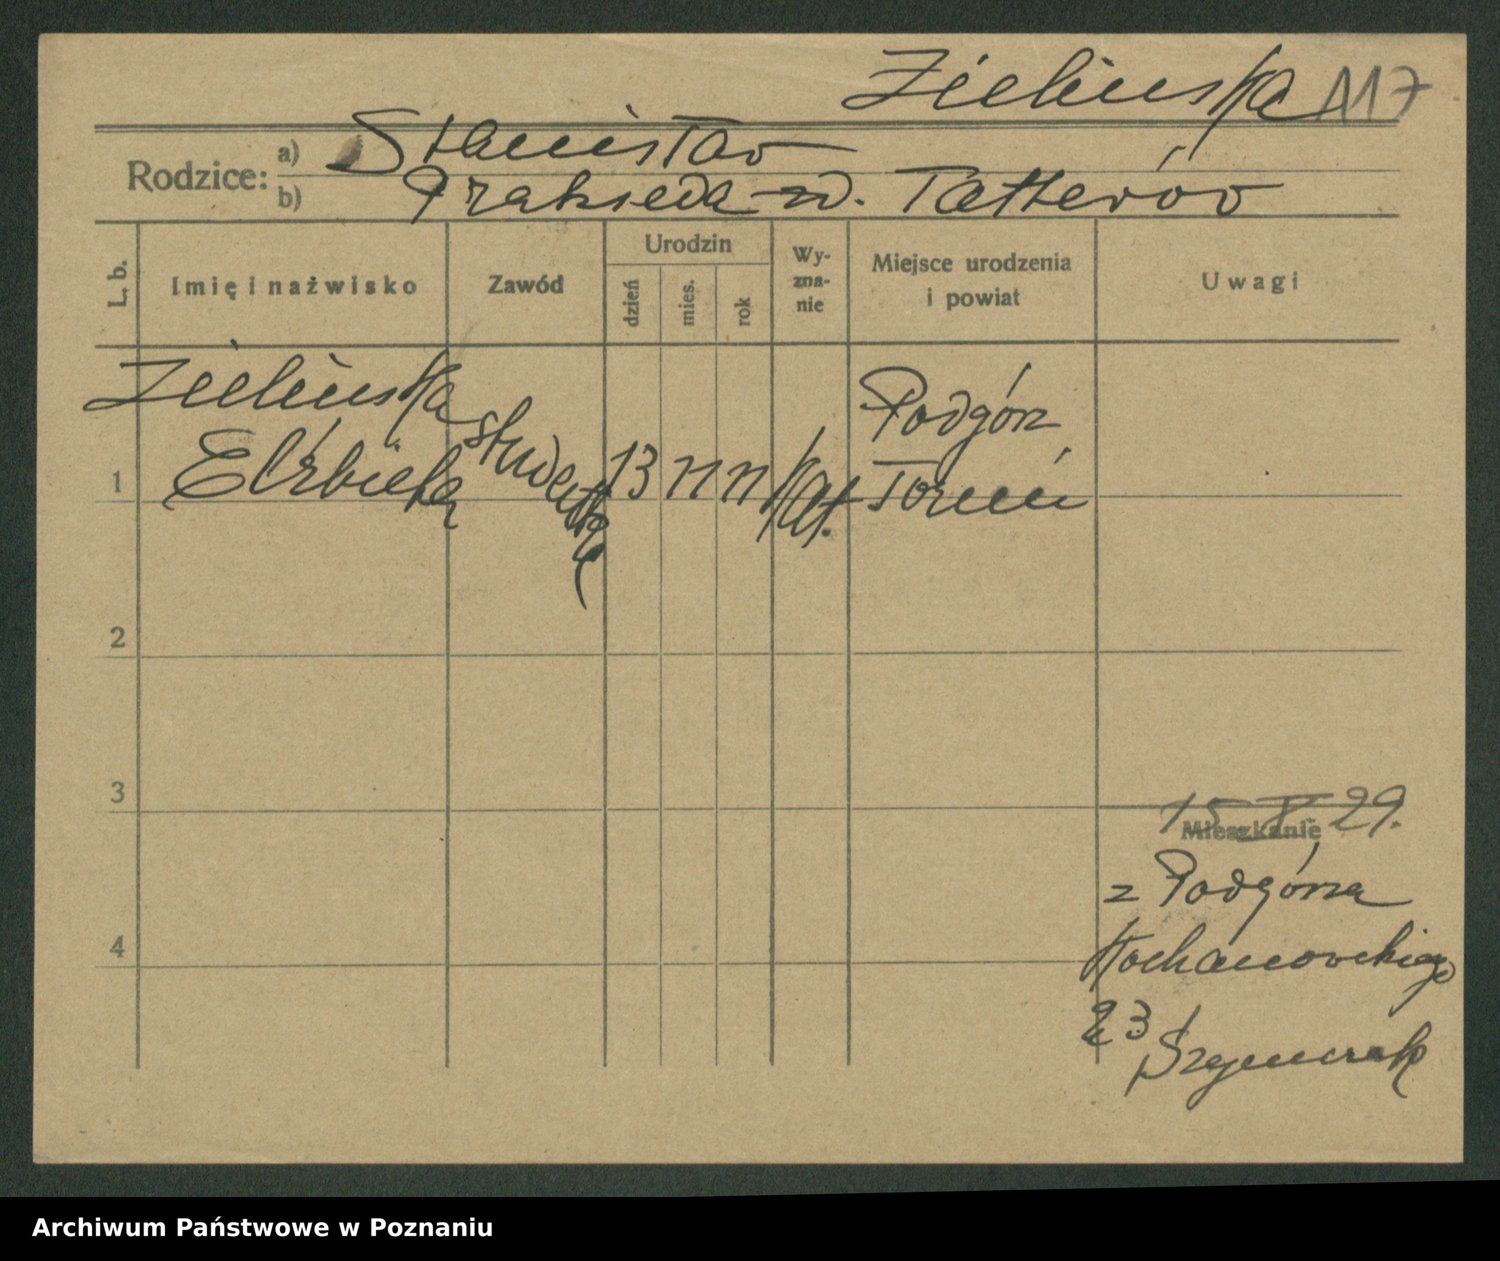 Zielińska 117
Rodzice: a) Stanisław
b) Prakseda zd. Tatterów
L. b.
Imię i nazwisko
Zawód
Urodzin
dzień
mies.
rok
Wy-
zna-
nie
Miejsce urodzenia
i powiat
Uwagi
Zielińska
Elżbieta
studentka
1
13
11
11
kat.
Podgórz
Toruń
2
3
15 X 29.
Mieszkanie
z Podgórza
4
Kochanowskiego
23
Szymczak
Archiwum Państwowe w Poznaniu